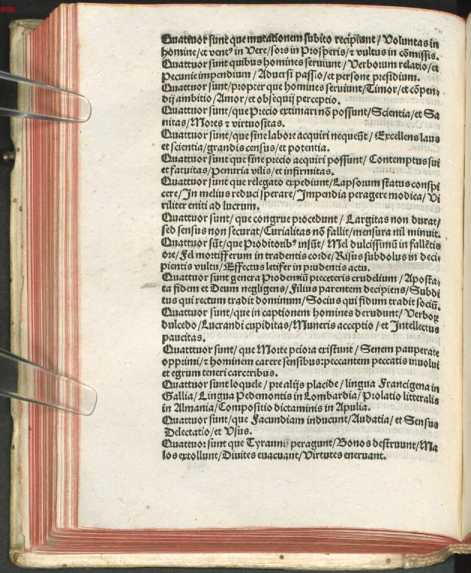 Quattuor sunt que mutationem subito recipiunt/Voluntas in
homine/et ventꝰ in Vere/sors in Prosperis/⁊ vultus in cōmissis.
Quattuor sunt quibus homines seruiunt/Verborum relatio/et
Pecunie impendium/Aduersi passio/et persone presidium.
Quattuor sunt/propter que homines seruiunt/Timor/et cōpen
dij ambitio/Amor/et obsequij perceptio.
Quattuor sunt/que Precio extimari nō possunt/Scientia/et Sa
nitas/Mores ⁊ virtuositas.
Quattuor sunt/que sine labore acquiri nequeūt/Excellens laus
et scientia/grandis census/et potentia.
Quattuor sunt que sine precio acquiri possunt/Contemptus sui
et fatuitas/Penuria vilis/et infirmitas.
Quattuor sunt que relegato expediunt/Lapsorum status conspi
cere/In melius reduci sperare/Impendia peragere modica/Vi
riliter eniti ad lucrum.
Quattuor sunt/que congrue procedunt/Largitas non durat/
sed sensus non securat/Curialitas nō fallit/mensura nū minuit.
Quattuor sūt/que Proditoribꝰ insūt/Mel dulcissimū in fallētis
ore/Fel mortifferum in tradentis corde/Risus subdolus in deci
pientis vultu/Effectus letifer in prudentis actu.
Quattuor sunt genera Prodentiū preceteris crudelium/Aposta
ta fidem et Deum negligens/Filius parentem decipiens/Subdi
tus qui rectum tradit dominum/Socius qui fidum tradit sociū.
Quattuor sunt/que in captionem homines derudunt/Verboꝝ
dulcedo/Lucrandi cupiditas/Muneris acceptio/et Intellectus
paucitas.
Quarttuor sunt/que Morte peiora existunt/Senem pauperate
opprimi/⁊ hominem carere sensibus:peccantem peccatis inuolui
et egrum teneri carceribus.
Quattuor sunt loquele/pre alijs placide/lingua Francigena in
Gallia/Lingua Pedemontis in Lombardia/Prolatio litteralis
in Almania/Compositio dictaminis in Apulia.
Quattuor sunt/que Facundiam inducunt/Audatia/et Sensus
Delectatio/et Vsus.
Quattuor sunt que Tyranni peragunt/Bonos destruunt/Ma
los extollunt/Diuites euacuant/Virtutes eneruant.